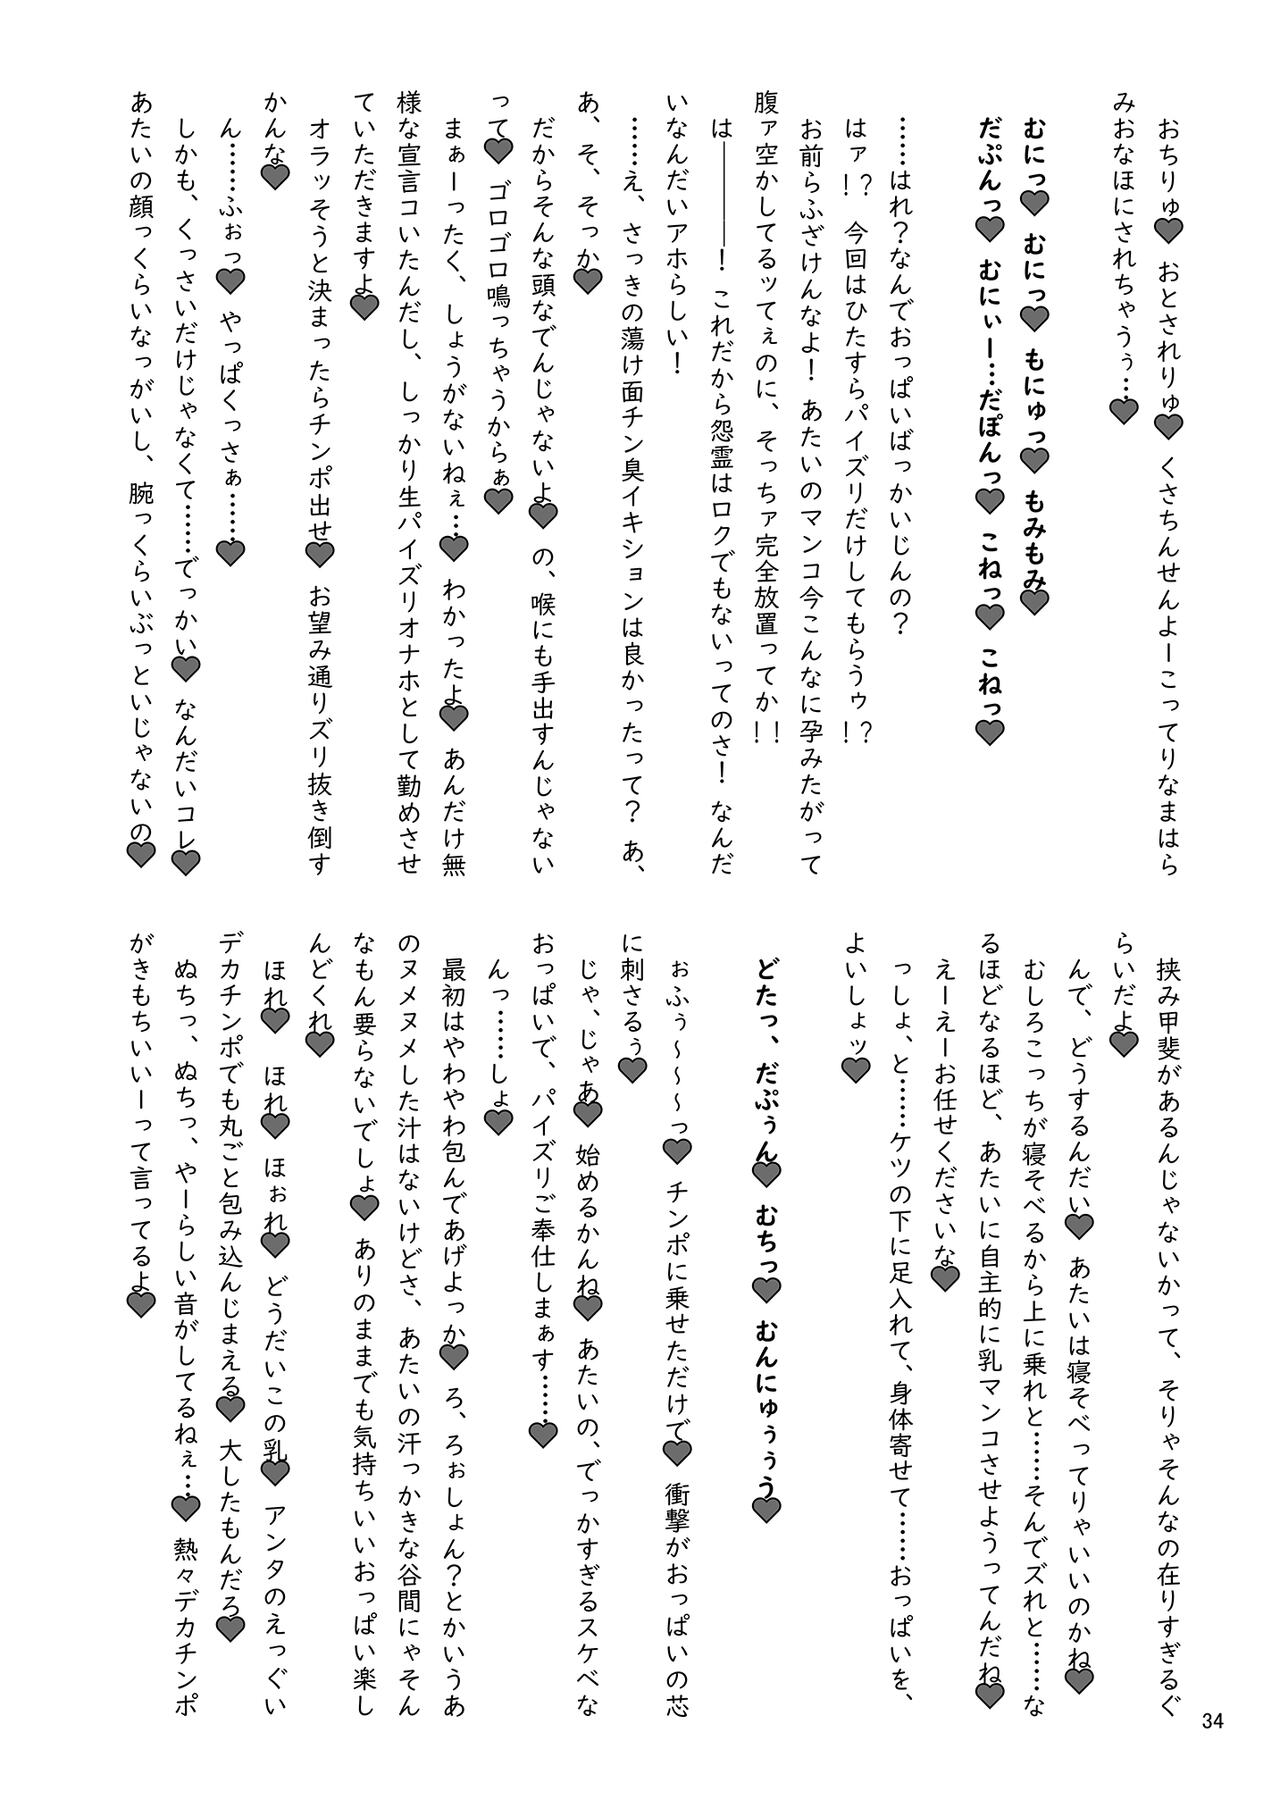 おちりゅ♥　おとされりゅ♥　くさちんせんよーこってりなまはら
みおなほにされちゃうぅ…♥
むにっ♥　むにっ♥　もにゅっ♥　もみもみ♥
だぷんっ♥　むにぃー…だぽんっ♥　こねっ♥　こねっ♥
……はれ？なんでおっぱいばっかいじんの？
はァ！？　今回はひたすらパイズリだけしてもらうゥ！？
お前らふざけんなよ！　あたいのマンコ今こんなに孕みたがって
腹ァ空かしてるッてぇのに、そっちァ完全放置ってか！！
は————！　これだから怨霊はロクでもないってのさ！　なんだ
いなんだいアホらしい！
……え、さっきの蕩け面チン臭イキションは良かったって？　あ、
あ、そ、そっか♥
だからそんな頭なでんじゃないよ♥　の、喉にも手出すんじゃない
って♥　ゴロゴロ鳴っちゃうからぁ♥
まぁーったく、しょうがないねぇ…♥　わかったよ♥　あんだけ無
様な宣言コいたんだし、しっかり生パイズリオナホとして勤めさせ
ていただきますよ♥
オラッそうと決まったらチンポ出せ♥　お望み通りズリ抜き倒す
かんな♥
ん……ふぉっ♥　やっぱくっさぁ……♥
しかも、くっさいだけじゃなくて……でっかい♥　なんだいコレ♥
あたいの顔っくらいなっがいし、腕っくらいぶっといじゃないの♥
挟み甲斐があるんじゃないかって、そりゃそんなの在りすぎるぐ
らいだよ♥
んで、どうするんだい♥　あたいは寝そべってりゃいいのかね♥
むしろこっちが寝そべるから上に乗れと……そんでズれと……な
るほどなるほど、あたいに自主的に乳マンコさせようってんだね♥
えーえーお任せくださいな♥
っしょ、と……ケツの下に足入れて、身体寄せて……おっぱいを、
よいしょッ♥
どたっ、だぷぅん♥　むちっ♥　むんにゅぅぅう♥
ぉふぅ～～～っ♥　チンポに乗せただけで♥　衝撃がおっぱいの芯
に刺さるぅ♥
じゃ、じゃあ♥　始めるかんね♥　あたいの、でっかすぎるスケベな
おっぱいで、パイズリご奉仕しまぁす……♥
んっ……しょ♥
最初はやわやわ包んであげよっか♥　ろ、ろぉしょん？とかいうあ
のヌメヌメした汁はないけどさ、あたいの汗っかきな谷間にゃそん
なもん要らないでしょ♥　ありのままでも気持ちいいおっぱい楽し
んどくれ♥
ほれ♥　ほれ♥　ほぉれ♥　どうだいこの乳♥　アンタのえっぐい
デカチンポでも丸ごと包み込んじまえる♥　大したもんだろ♥
ぬちっ、ぬちっ、やーらしい音がしてるねぇ…♥　熱々デカチンポ
がきもちいいーって言ってるよ♥
34